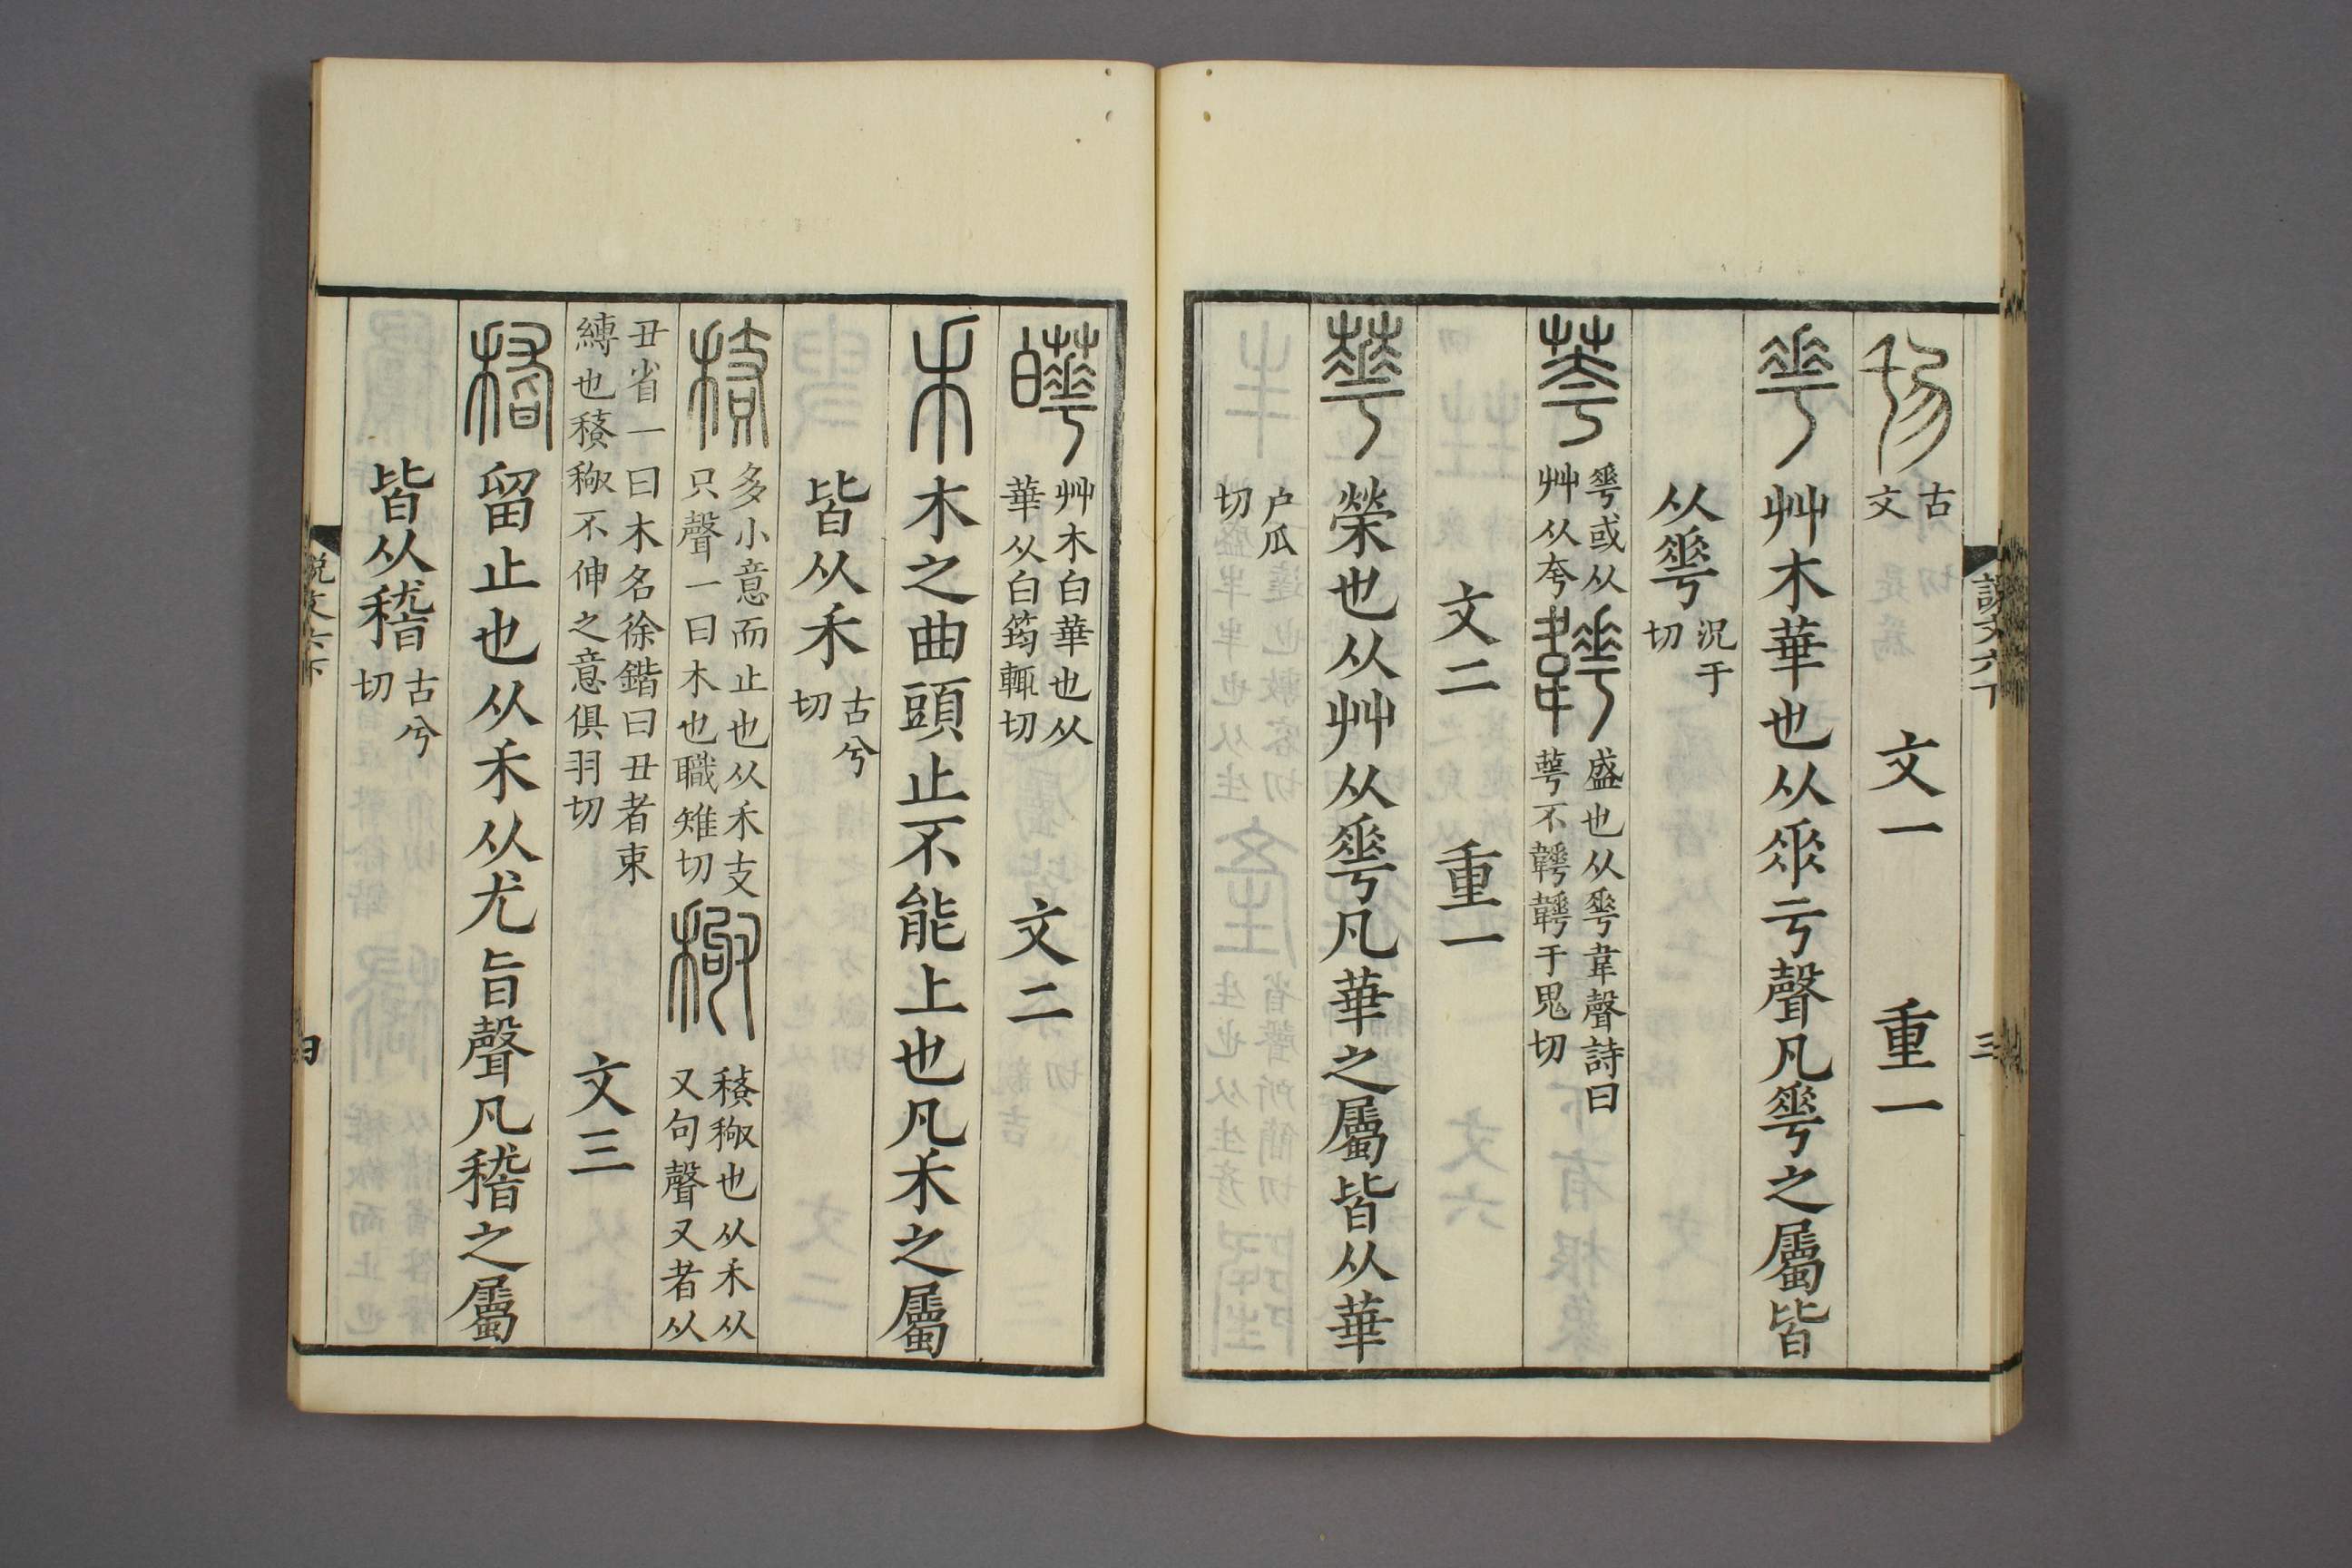 說文六下
三
古文
文一
重一
艸木華也从𠂹亏聲凡𠌶之屬皆
从𠌶況于切
𠌶或从艸从夸
盛也从𠌶韋聲詩曰萼不韡韡于鬼切
文二
重一
榮也从艸从𠌶凡華之屬皆从華
户瓜切
艸木白華也从華从白筠輒切
文二
木之曲頭止不能上也凡𥝌之屬
皆从𥝌古兮切
多小意而止也从𥝌支只聲一曰木也職雉切
𥠻𥡴也从𥝌从又句聲又者从
丑省一曰木名徐鍇曰丑者束縛也𥠻𥡴不伸之意俱羽切
文三
留止也从𥝌从尤旨聲凡稽之屬
皆从稽古兮切
說文六下